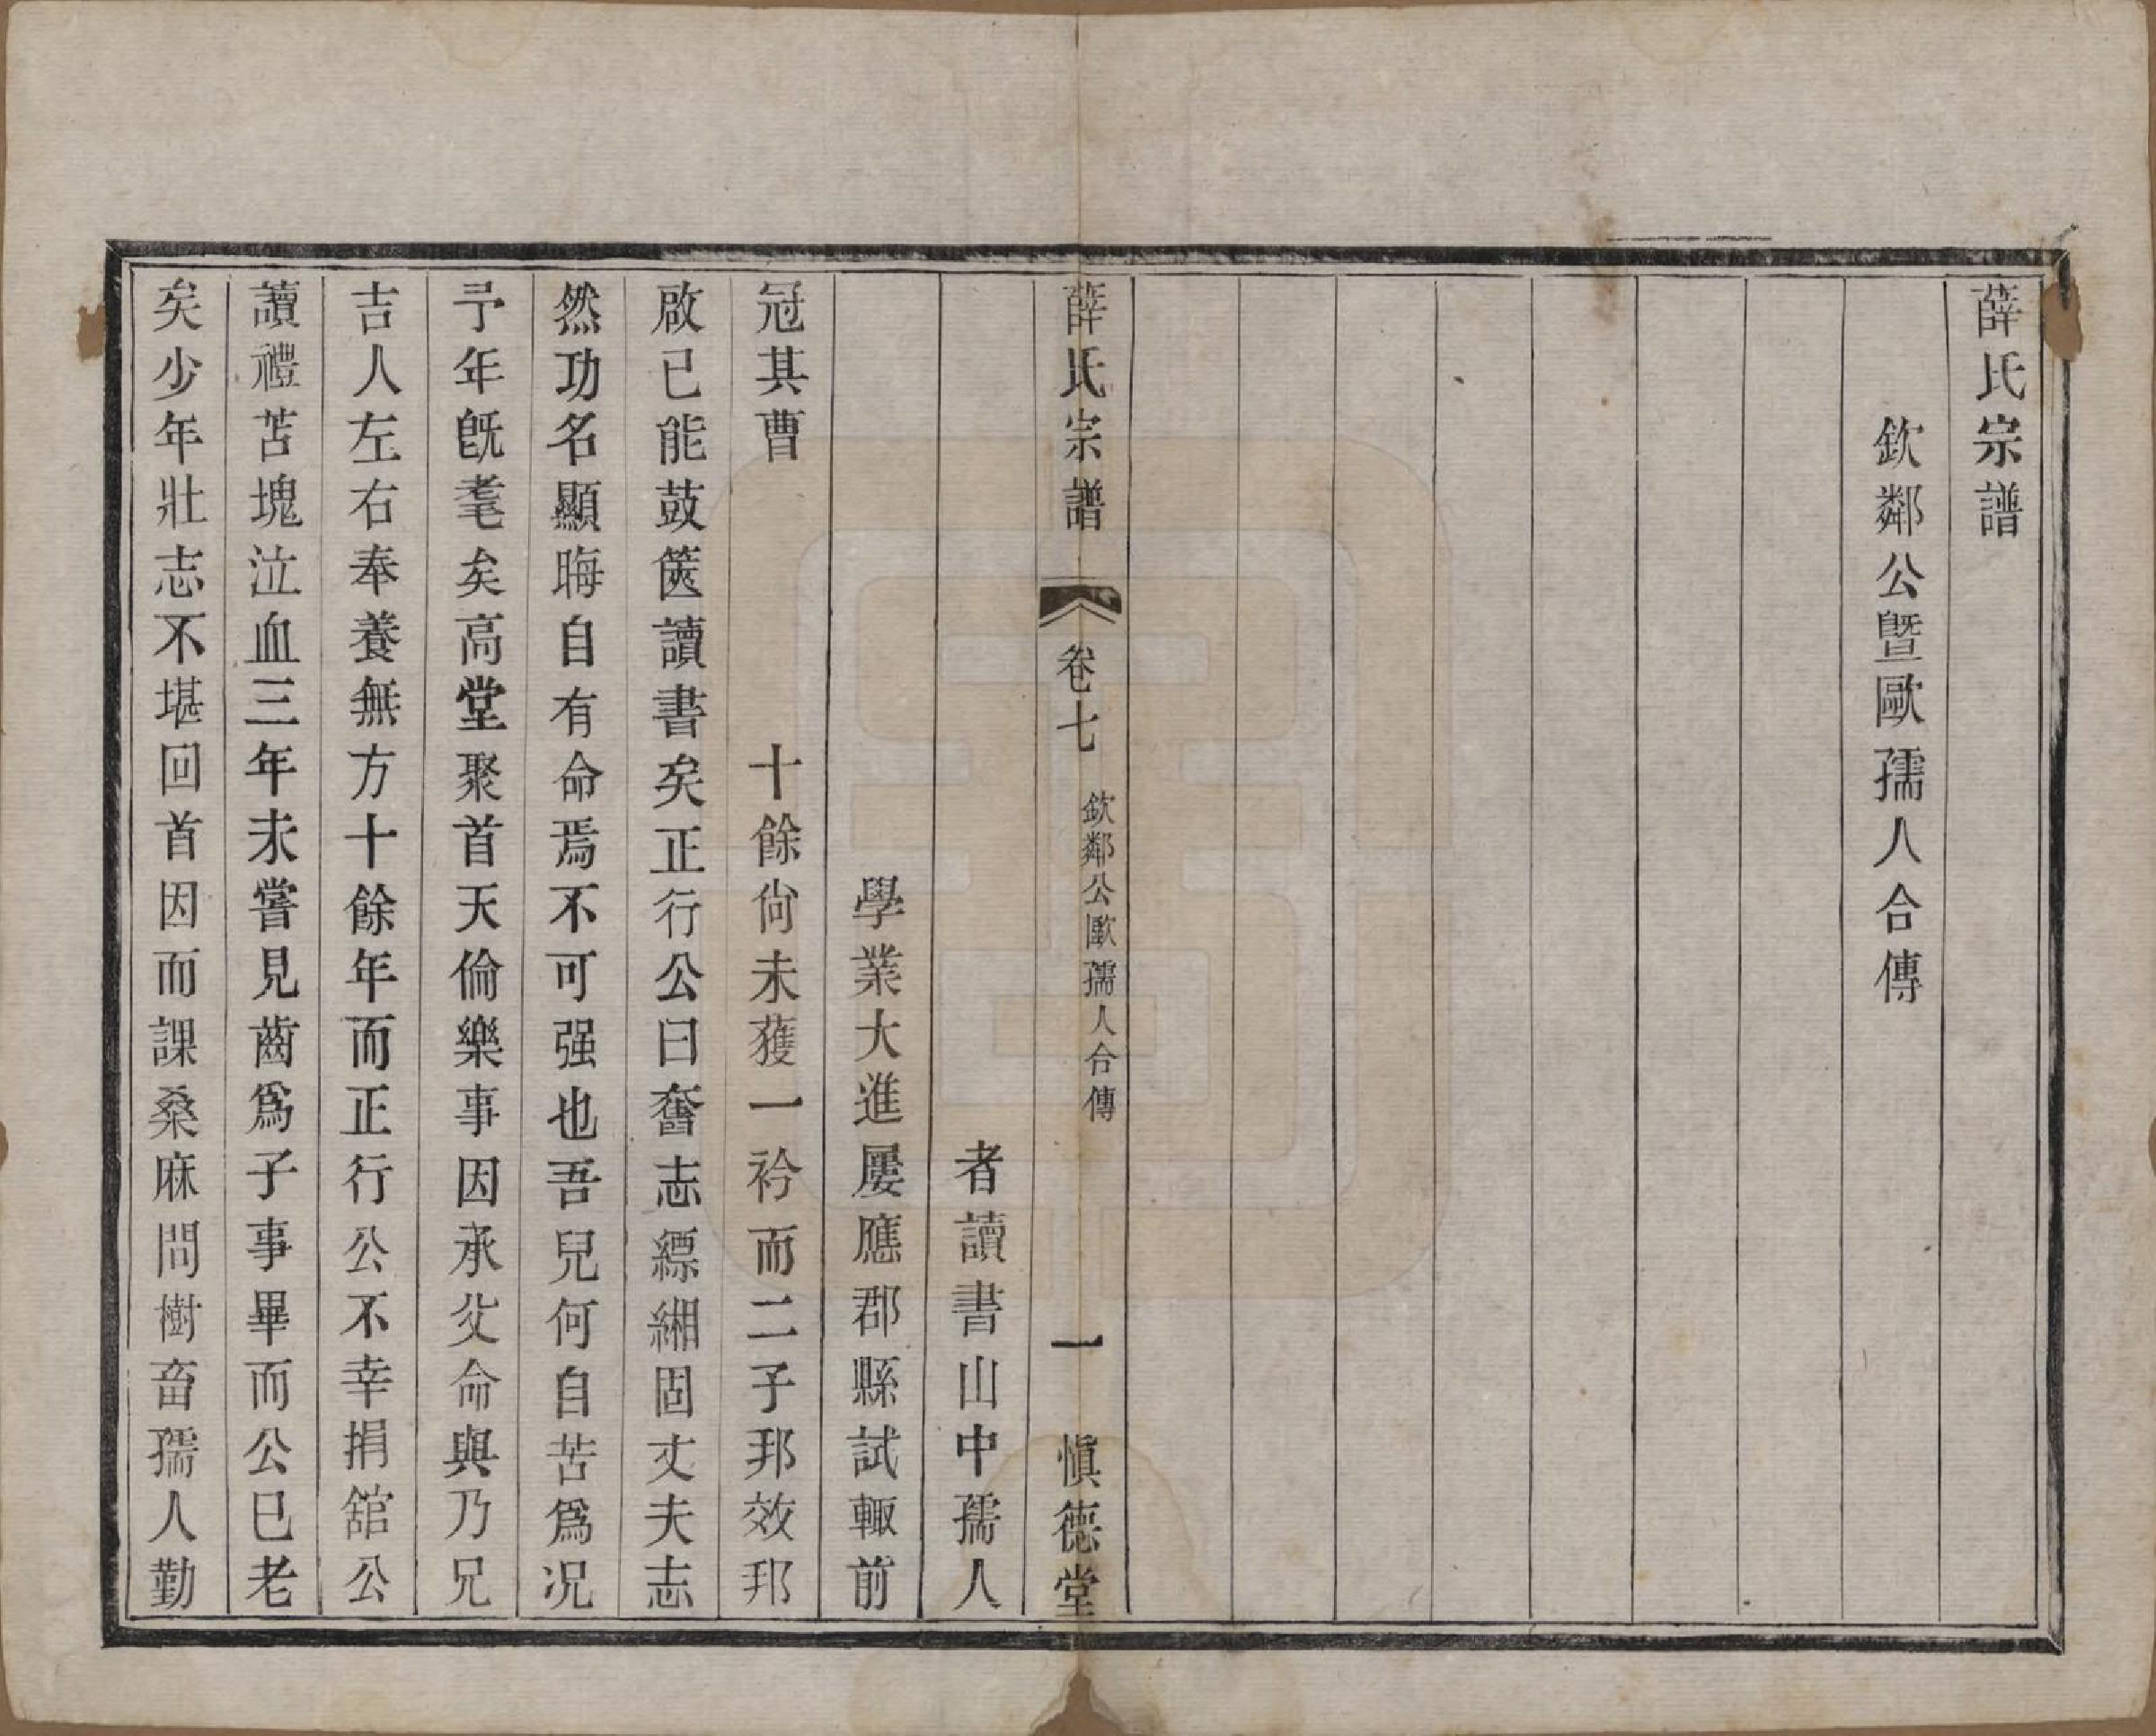 薛氏宗譜
欽鄰公暨歐孺人合傳
薛氏宗譜 卷七 欽鄰公歐孺人合傳 一 愼德堂
者讀書山中孺人
學業大進屢應郡縣試輒前
冠其曹 十餘尙未獲一衿而二子邦效邦
啟已能鼓篋讀書矣正行公曰奮志縹緗固丈夫志
然功名顯晦自有命焉不可强也吾兒何自苦爲况
予年旣耄矣高堂聚首天倫樂事因承父命與乃兄
吉人左右奉養無方十餘年而正行公不幸捐舘公
讀禮苫塊泣血三年未嘗見齒爲子事畢而公已老
矣少年壯志不堪回首因而課桑麻問樹畜孺人勤